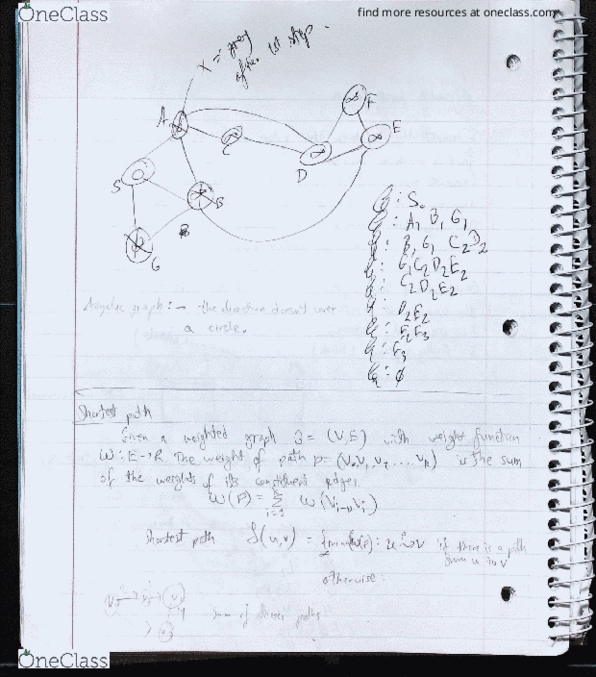 OneClass
find more resources at oneclass.com
X = grey
after 1st step.
A
∞
C
∞
D
∞
F
∞
E
∞
S
B
G
B
Q : S₀
Q : A₁ B₁ G₁
Q : B₁ G₁ C₂ D₂
Q : G₁ C₂ D₂ E₂
Q : C₂ D₂ E₂
Q : D₂ E₂
Q : E₂ F₃
Q : F₃
Q : ∅
Acyclic graph :- the direction doesn't
a circle.
Shortest path
Given a weighted graph G = (V, E) with weight function
W : E → R. The weight of path p = (V₀, V₁, V₂ .... Vk) is the sum
of the weights of its constituent edges,
W(P) = Σ i=1 w(Vi-1, Vi)
Shortest path δ(u,v) = { min{w(p) : u ⇝ v if there is a path
from u to v
otherwise.
sum of paths
OneClass